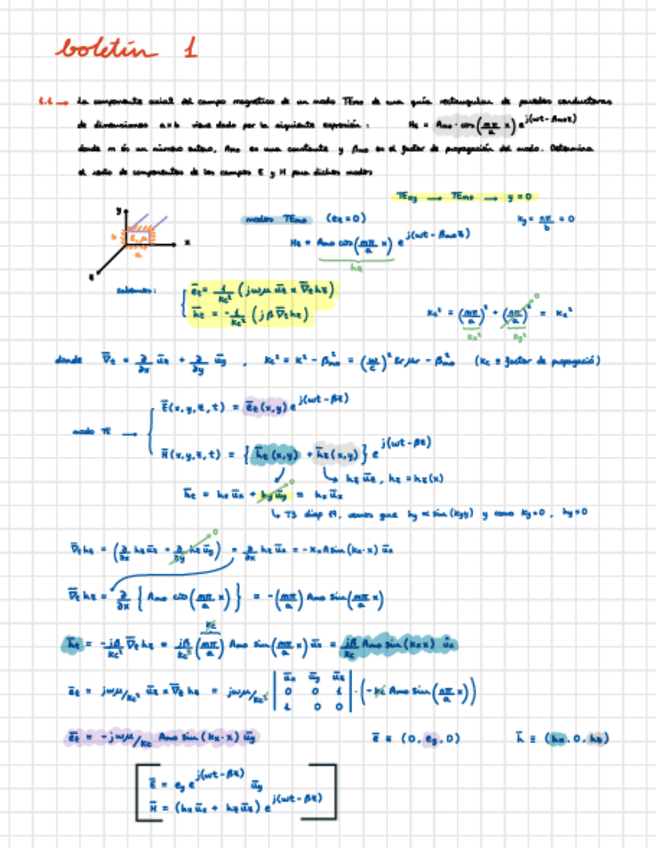 boletín 1
1.1 → La componente axial del campo magnético de un modo TEm0 de una guía rectangular de paredes conductoras
de dimensiones a×b viene dado por la siguiente expresión: Hz = Am0 · cos(mπ/a x) e^j(wt-βm0z)
donde m es un número entero, Am0 es una constante y βm0 es el factor de propagación del modo. Determina
el resto de componentes de los campos E y H para dichos modos
TExy → TEm0 → y = 0
modos TEm0 (ez = 0) ky = nπ/b = 0
Hz = Am0 cos(mπ/a x) e^j(wt-βm0z)
hz
y
x
z
a
sabemos: { ēt = 1/kc² (jωμ ūz × ∇̄t hz)
h̄t = -1/kc² (jβ ∇̄t hz)
kc² = (mπ/a)² + (nπ/a)² = kx²
kx² ky² 0
donde ∇̄t = ∂/∂x ūx + ∂/∂y ūy , kc² = k² - βm0² = (ω/c)² εr μr - βm0² (kc ≡ factor de propagació)
modo TE → { Ē(x,y,z,t) = ēt(x,y) e^j(wt-βz)
H̄(x,y,z,t) = { h̄t(x,y) + h̄z(x,y) } e^j(wt-βz)
hz ūz , hz = hz(x)
h̄t = hx ūx + hy ūy = hx ūx
0
↳ T3 diap 19, vemos que hy ∝ sin(kyy) y como ky=0 , hy=0
∇̄t hz = (∂/∂x hz ūx + ∂/∂y hz ūy) = ∂/∂x hz ūx = -kx A sin(kx·x) ūx
0
∇̄t hz = ∂/∂x { Am0 cos(mπ/a x) } = -(mπ/a) Am0 sin(mπ/a x)
kc
h̄t = -jβ/kc² ∇̄t hz = jβ/kc² (mπ/a) Am0 sin(mπ/a x) ūx = jβ/kc Am0 sin(kxx) ūx
ēt = jωμ/kc² ūz × ∇̄t hz = jωμ/kc² | ūx ūy ūz | · (-kc Am0 sin(mπ/a x))
0 0 1
1 0 0
ēt = -jωμ/kc Am0 sin(kx·x) ūy ē ≡ (0, ey, 0) h̄ ≡ (hx, 0, hz)
Ē = ey e^j(wt-βz) ūy
H̄ = (hx ūx + hz ūz) e^j(wt-βz)